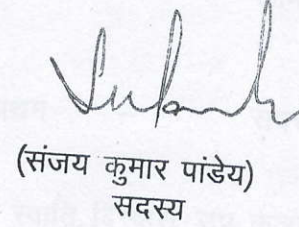 (संजय कुमार पांडेय)
सदस्य